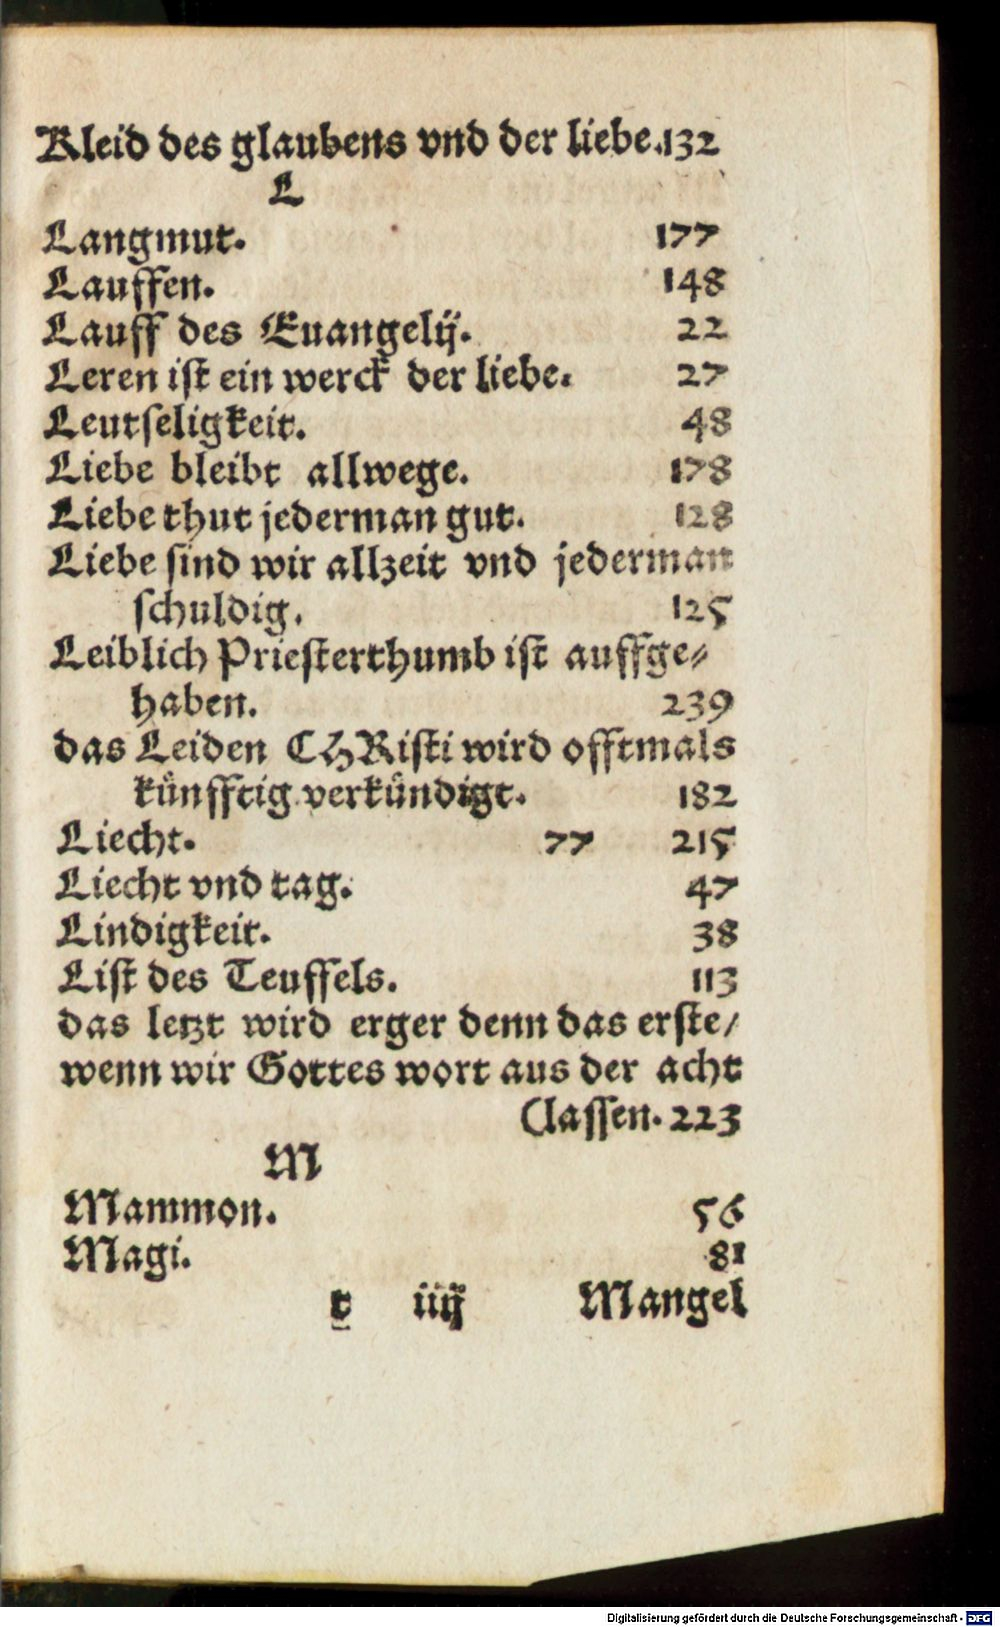 Kleid des glaubens vnd der liebe. 132
L
Langmut. 177
Lauffen. 148
Lauff des Euangelij. 22
Leren ist ein werck der liebe. 27
Leutseligkeit. 48
Liebe bleibt allwege. 178
Liebe thut jederman gut. 128
Liebe sind wir allzeit vnd jederman
schuldig. 125
Leiblich Priesterthumb ist auffge⸗
haben. 239
das Leiden CHRisti wird offtmals
künfftig verkündigt. 182
Liecht. 77 215
Liecht vnd tag. 47
Lindigkeit. 38
List des Teuffels. 113
das letzt wird erger denn das erste/
wenn wir Gottes wort aus der acht
(lassen. 223
M
Mammon. 56
Magi. 81
t iiij Mangel
Digitalisierung gefördert durch die Deutsche Forschungsgemeinschaft - DFG